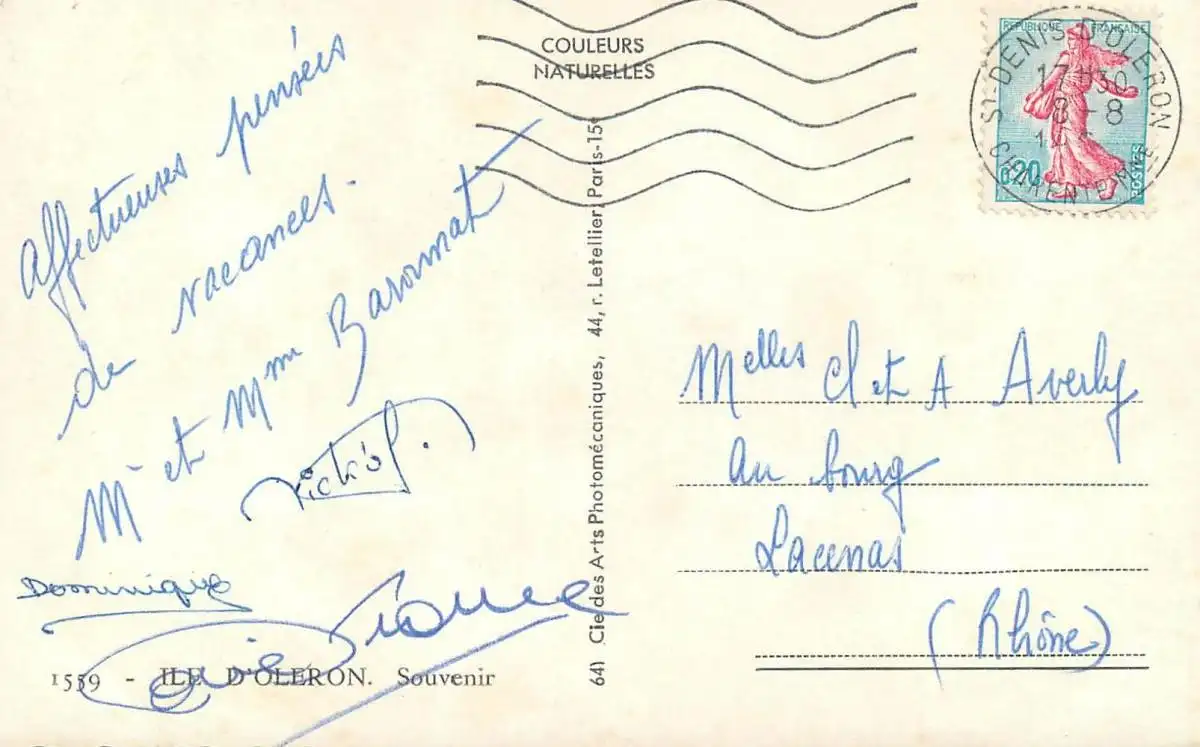 Affectueuses pensées
de vacances.
Mr et Mme Baronnat
Dominique
1559 - ILE D'OLÉRON. Souvenir
COULEURS
NATURELLES
641 Cie des Arts Photomécaniques, 44, r. Letellier, Paris-15e
RÉPUBLIQUE FRANÇAISE
0,20
POSTES
ST-DENIS D'OLERON
17H30
8-8
CHARENTE MME
Melles Cl et A Averly
Au bourg
Lacenas
(Rhône)